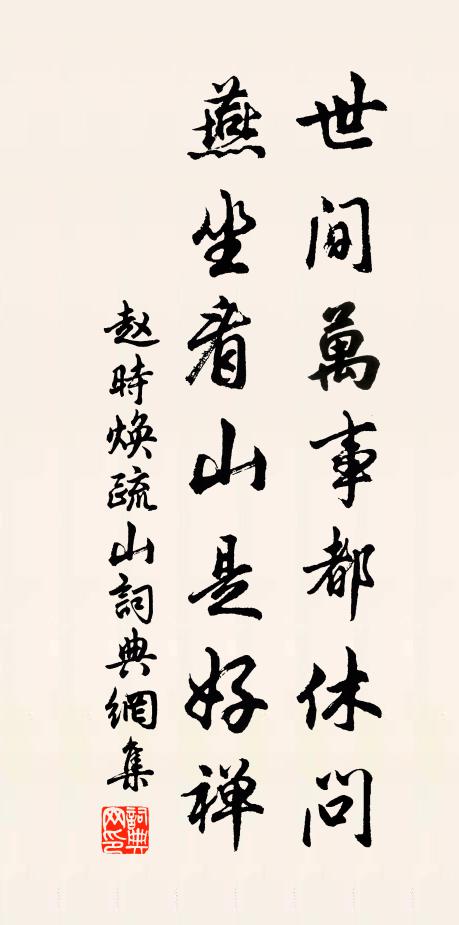 世間萬事都休問
燕坐看山是好禅
赵時焕疏山詞典網集
詞典网印